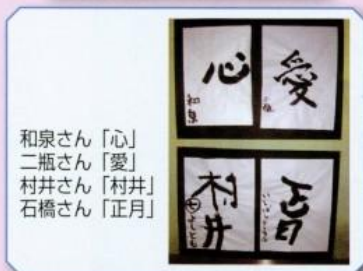 和泉さん「心」
二瓶さん「愛」
村井さん「村井」
石橋さん「正月」
心
和泉
愛
二瓶
村井
正月